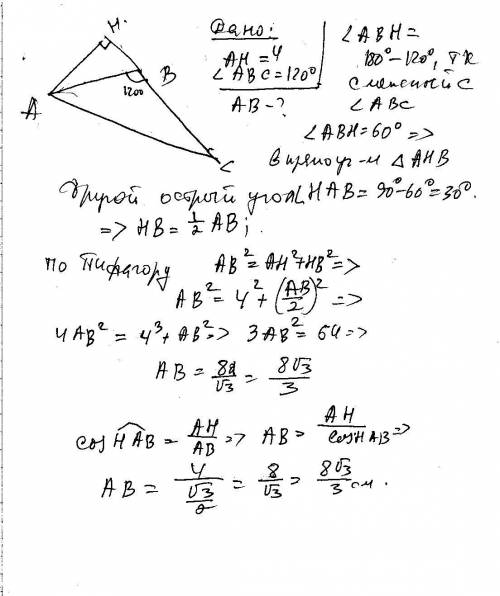 H.
B
A
120°
C
Дано:
AH = 4
∠ABC = 120°
AB - ?
∠ABH =
180° - 120°, т.к
смежный с
∠ABC
∠ABH = 60° =>
в прямоуг-м △AHB
Другой острый угол ∠HAB = 90° - 60° = 30°.
=> HB = 1/2 AB;
по Пифагору AB² = AH² + HB² =>
AB² = 4² + (AB/2)² =>
4AB² = 4³ + AB² => 3AB² = 64 =>
AB = 8/√3 = 8√3/3
cos HAB = AH/AB => AB = AH/cos HAB =>
AB = 4/(√3/2) = 8/√3 = 8√3/3 см.